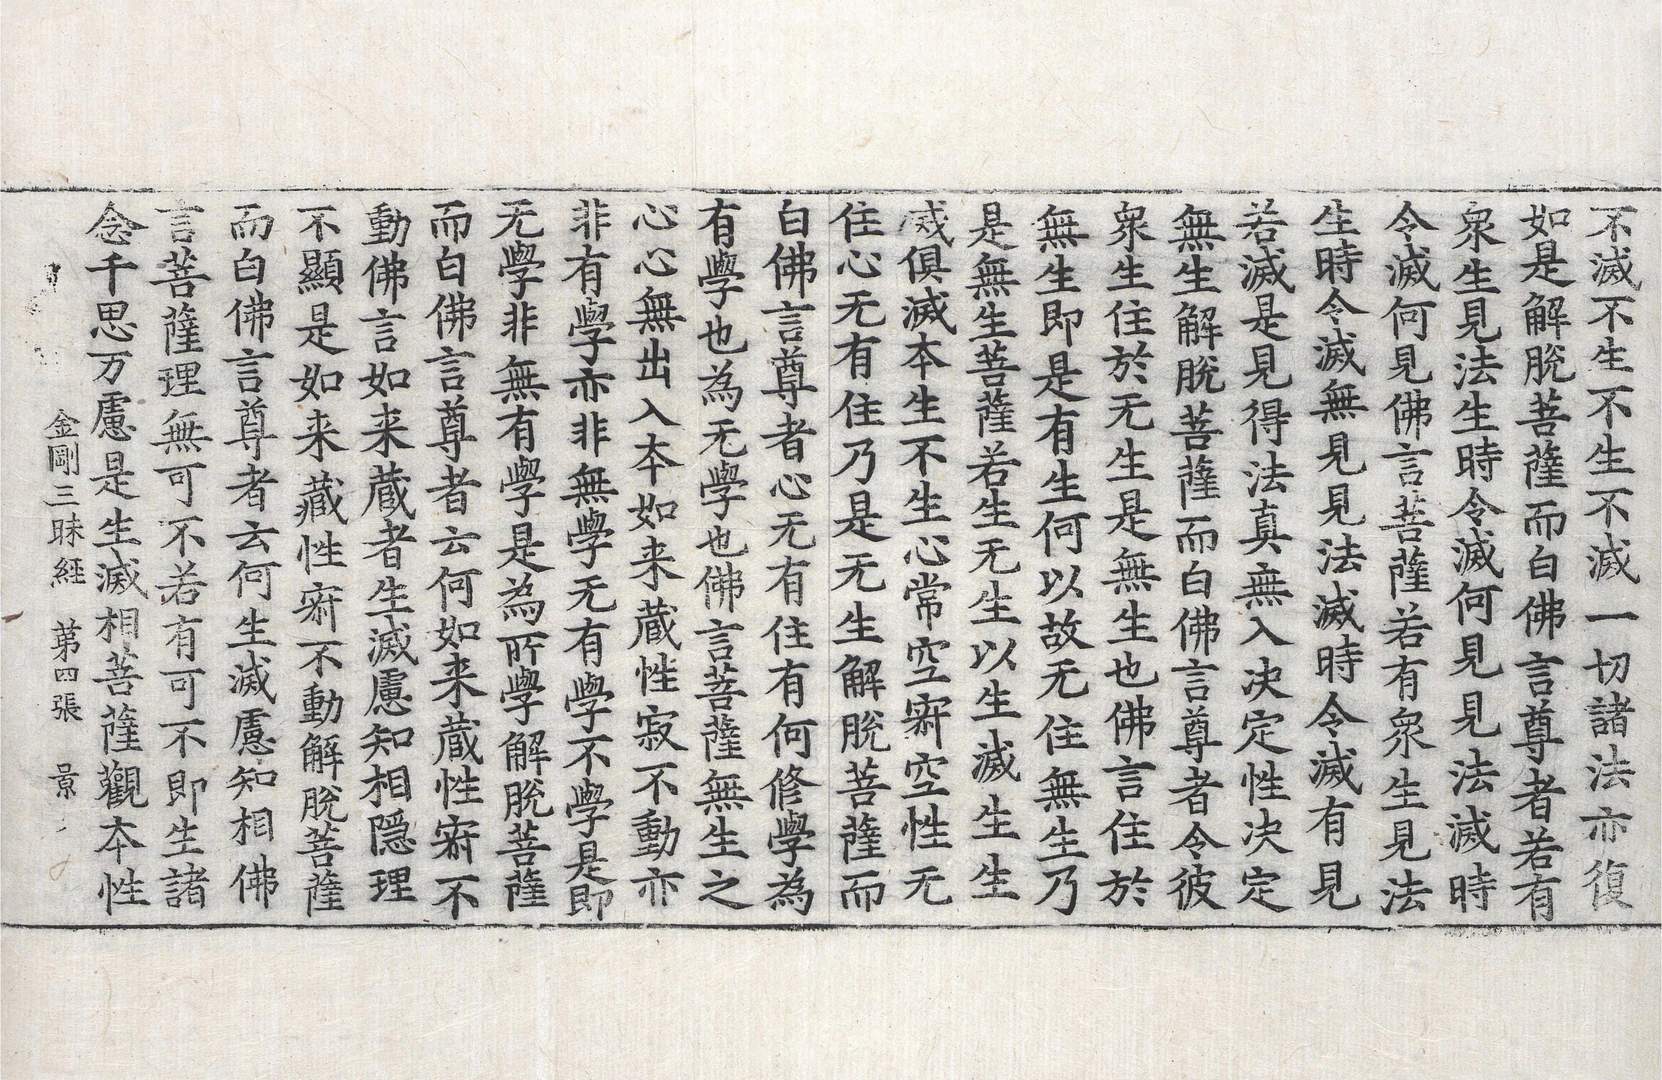 不滅不生不生不滅一切諸法亦復
如是解脫菩薩而白佛言尊者若有
衆生見法生時令滅何見見法滅時
令滅何見佛言菩薩若有衆生見法
生時令滅無見見法滅時令滅有見
若滅是見得法真無入决定性决定
無生解脫菩薩而白佛言尊者令彼
衆生住於无生是無生也佛言住於
無生即是有生何以故无住無生乃
是無生菩薩若生无生以生滅生生
滅俱滅本生不生心常空寂空性无
住心无有住乃是无生解脫菩薩而
白佛言尊者心无有住有何修學為
有學也為无學也佛言菩薩無生之
心心無出入本如来藏性寂不動亦
非有學亦非無學无有學不學是即
无學非無有學是為所學解脫菩薩
而白佛言尊者云何如来藏性寂不
動佛言如来藏者生滅慮知相隱理
不顯是如来藏性寂不動解脫菩薩
而白佛言尊者云何生滅慮知相佛
言菩薩理無可不若有可不即生諸
念千思万慮是生滅相菩薩觀本性
金剛三昧経 第四張 景